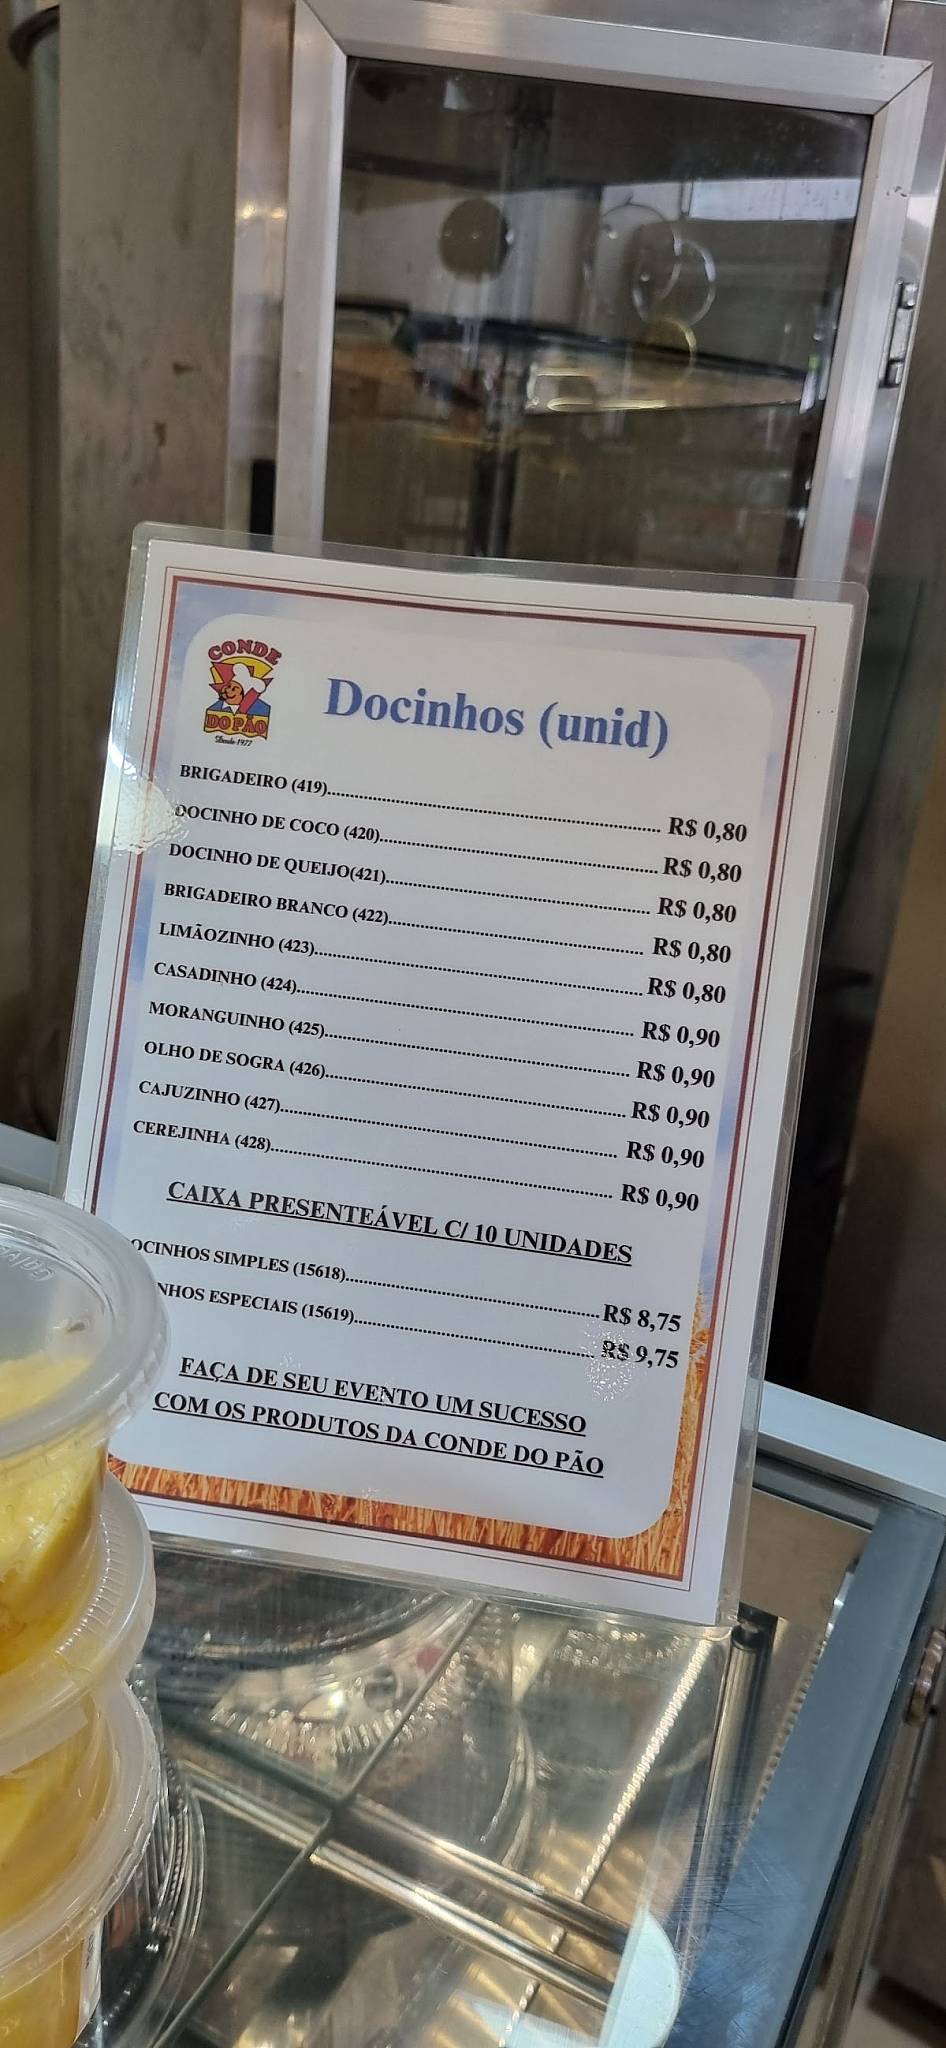 CONDE
DO PÃO
Desde 1977
Docinhos (unid)
BRIGADEIRO (419)........ R$ 0,80
DOCINHO DE COCO (420)........ R$ 0,80
DOCINHO DE QUEIJO(421)........ R$ 0,80
BRIGADEIRO BRANCO (422)........ R$ 0,80
LIMÃOZINHO (423)........ R$ 0,80
CASADINHO (424)........ R$ 0,90
MORANGUINHO (425)........ R$ 0,90
OLHO DE SOGRA (426)........ R$ 0,90
CAJUZINHO (427)........ R$ 0,90
CEREJINHA (428)........ R$ 0,90
CAIXA PRESENTEÁVEL C/ 10 UNIDADES
OCINHOS SIMPLES (15618)........ R$ 8,75
NHOS ESPECIAIS (15619)........ R$ 9,75
FAÇA DE SEU EVENTO UM SUCESSO
COM OS PRODUTOS DA CONDE DO PÃO